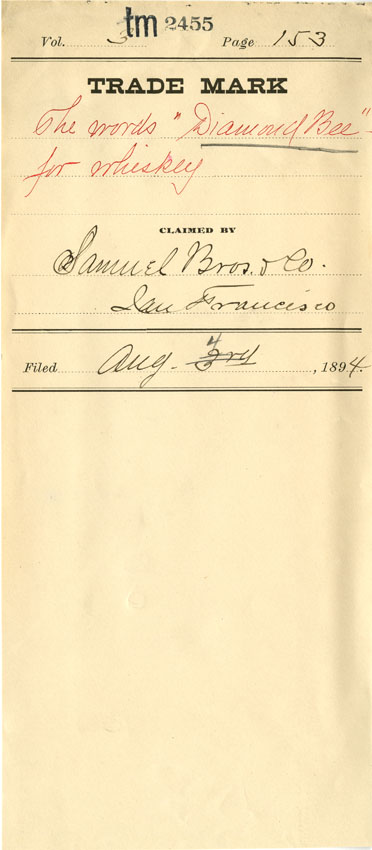 tm 2455
Vol. 3 Page 153
TRADE MARK
The words "Diamond Bee"
for whiskey
CLAIMED BY
Samuel Bros. & Co.
San Francisco
Filed Aug. 4 3rd, 1894.